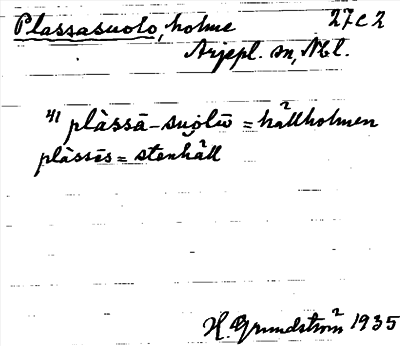 Plassasuolo, holme 27c2
Arjepl. sn, Nbl.
41 plàssā-suolū = hällholmen
plàssēs = stenhäll
H. Grundström 1935